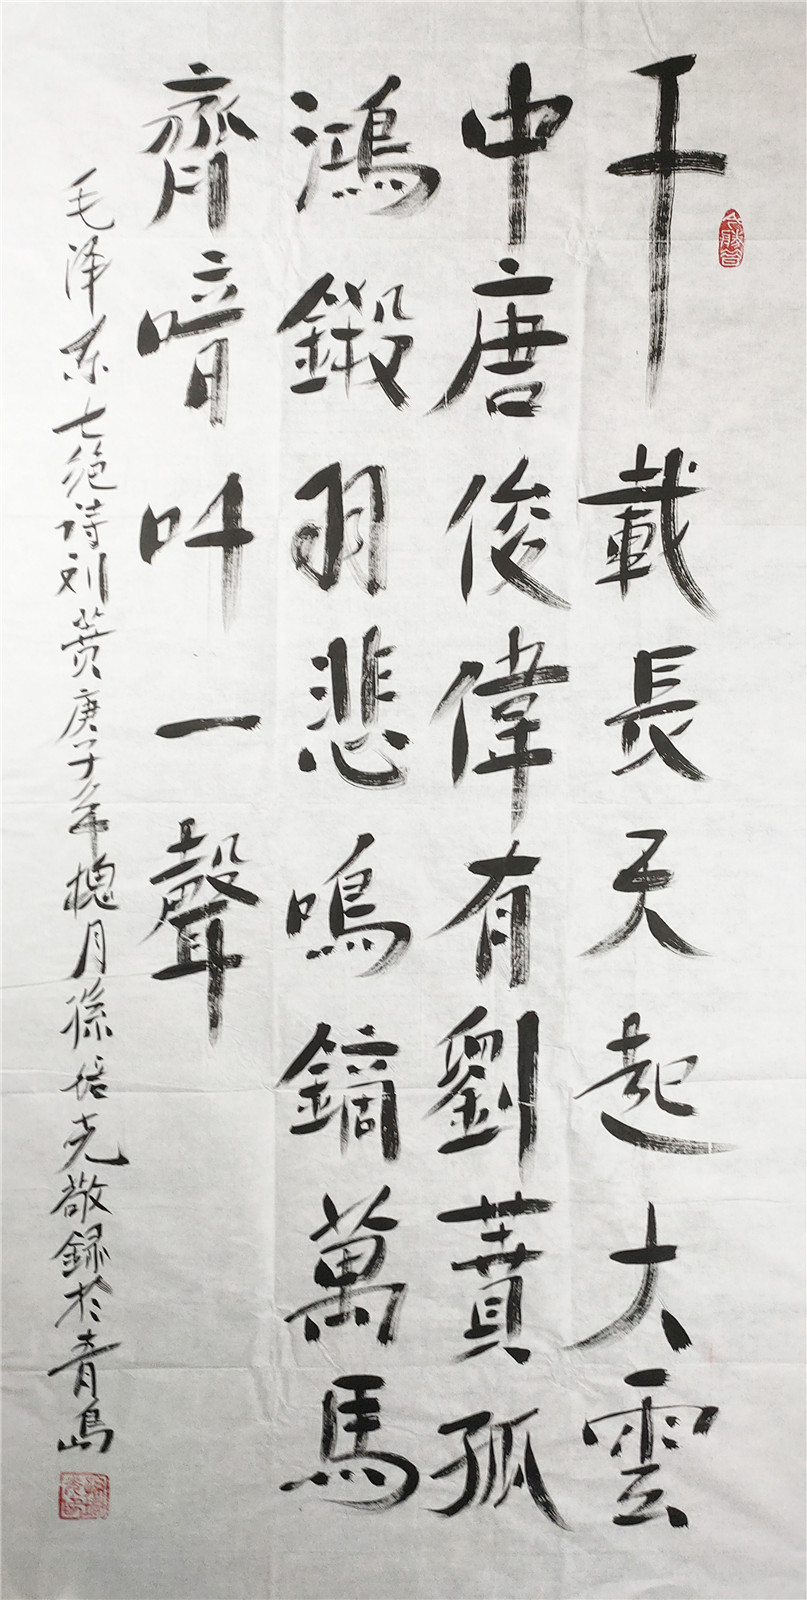 千載長天起大雲
中唐俊偉有劉蕡孤
鴻鍛羽悲鳴鏑萬馬
齊喑叫一聲
毛泽东七绝诗刘蕡庚子年槐月孫培光敬録於青島